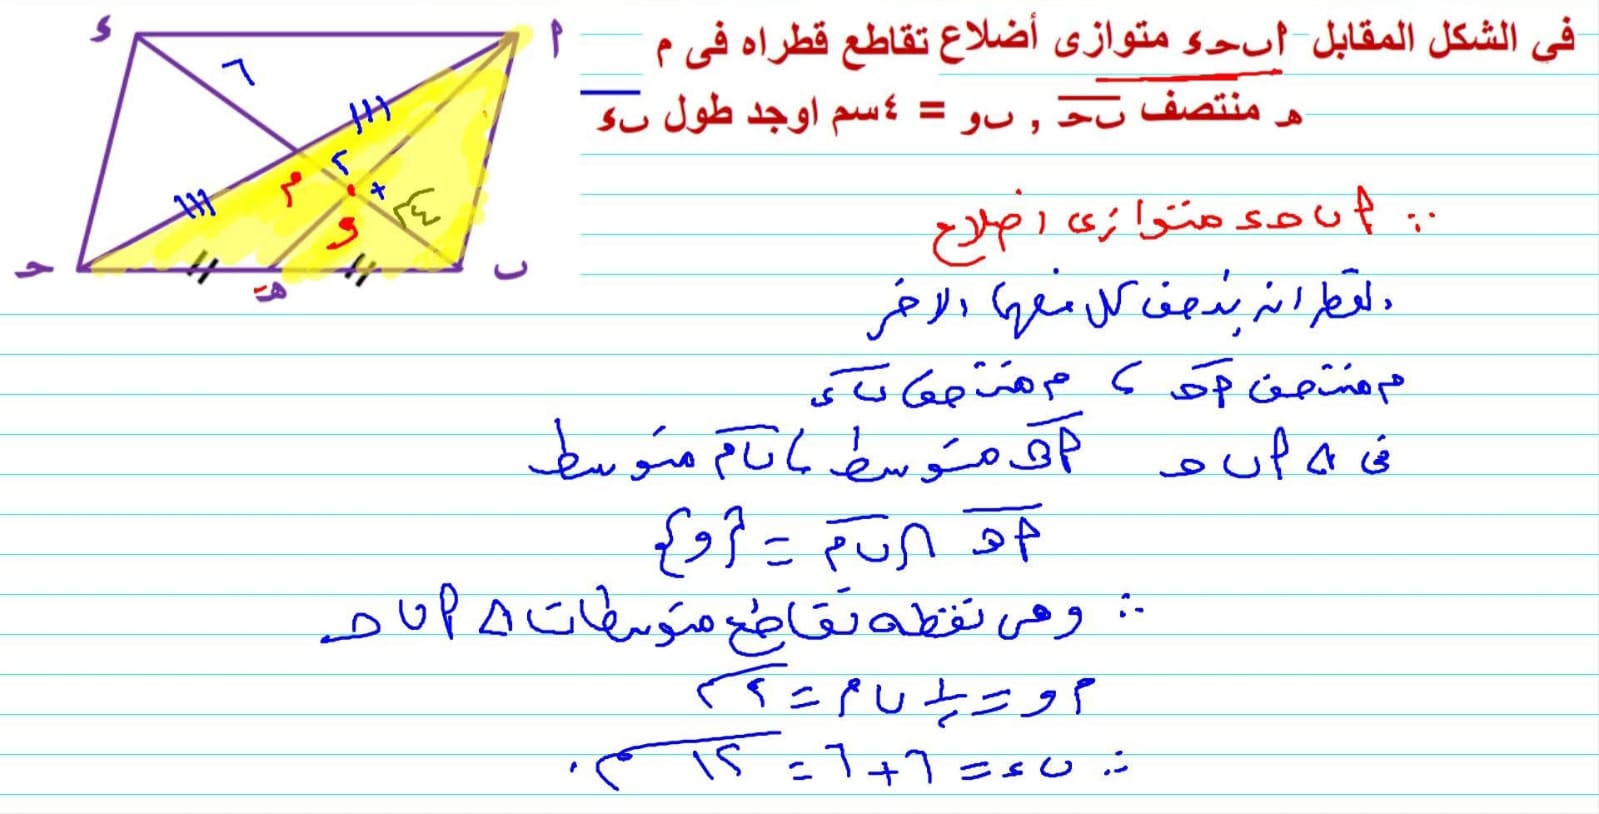 فى الشكل المقابل أبحء متوازى أضلاع تقاطع قطراه فى م
هـ منتصف بحـ , بو = ٤سم اوجد طول بء
ء
أ
٦
٢
م
٤سم
و
حـ
هـ
ب
∵ أ ب حـ ء متوازى اضلاع
القطران ينصف كل منهما الاخر
م منتصف أحـ ، م منتصف بء
فى Δ أ ب حـ أهـ متوسط ، بم متوسط
أهـ ∩ بم = {و}
∴ و هى نقطه تقاطع متوسطات Δ أ ب حـ
م و = ب م = ٢سم
∴ ب ء = ٦ + ٦ = ١٢ سم